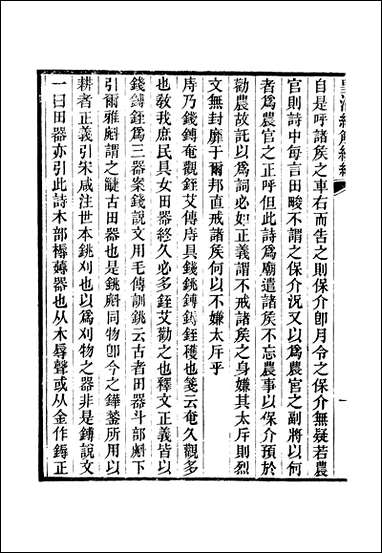 自是呼諸矦之車右而告之則保介卽月令之保介無疑若農
官則詩中每言田畯不謂之保介況又以爲農官之副將以何
者爲農官之正呼但此詩爲廟遣諸矦不忘農事以保介預於
勸農故託以爲詞必如正義謂不戒諸矦之身嫌其太斥則烈
文無封靡于爾邦直戒諸矦何以不嫌太斥乎
庤乃錢鎛奄觀銍艾傳庤具錢銚鎛銍穫也箋云奄久觀多
也敎我庶民具女田器終久必多銍艾勸之也釋文正義皆以
錢鎛銍爲三器案錢說文用毛傳訓銚云古者田器斗部㪿下
引爾雅㪿謂之疀古田器也是銚㪿同物卽今之鏵鍫所用以
耕者正義引宋咸注世本銚刈也以爲刈物之器非是鎛說文
一曰田器亦引此詩木部槈薅器也从木辱聲或从金作鎒正